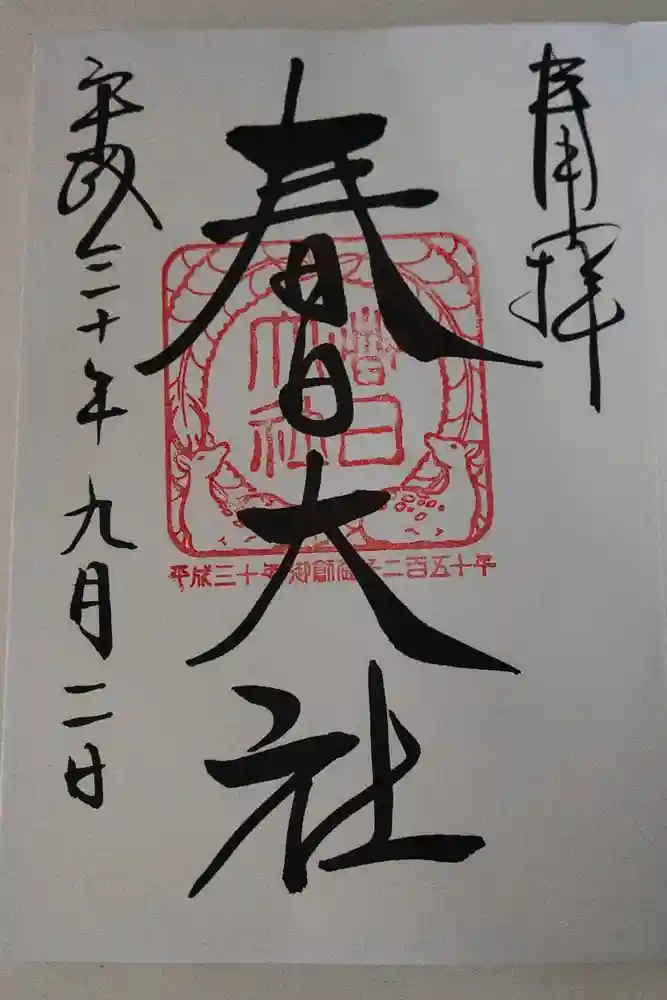 奉拝
春日大社
春日
大社
平成三十年御創建千二百五十年
平成三十年 九月二日